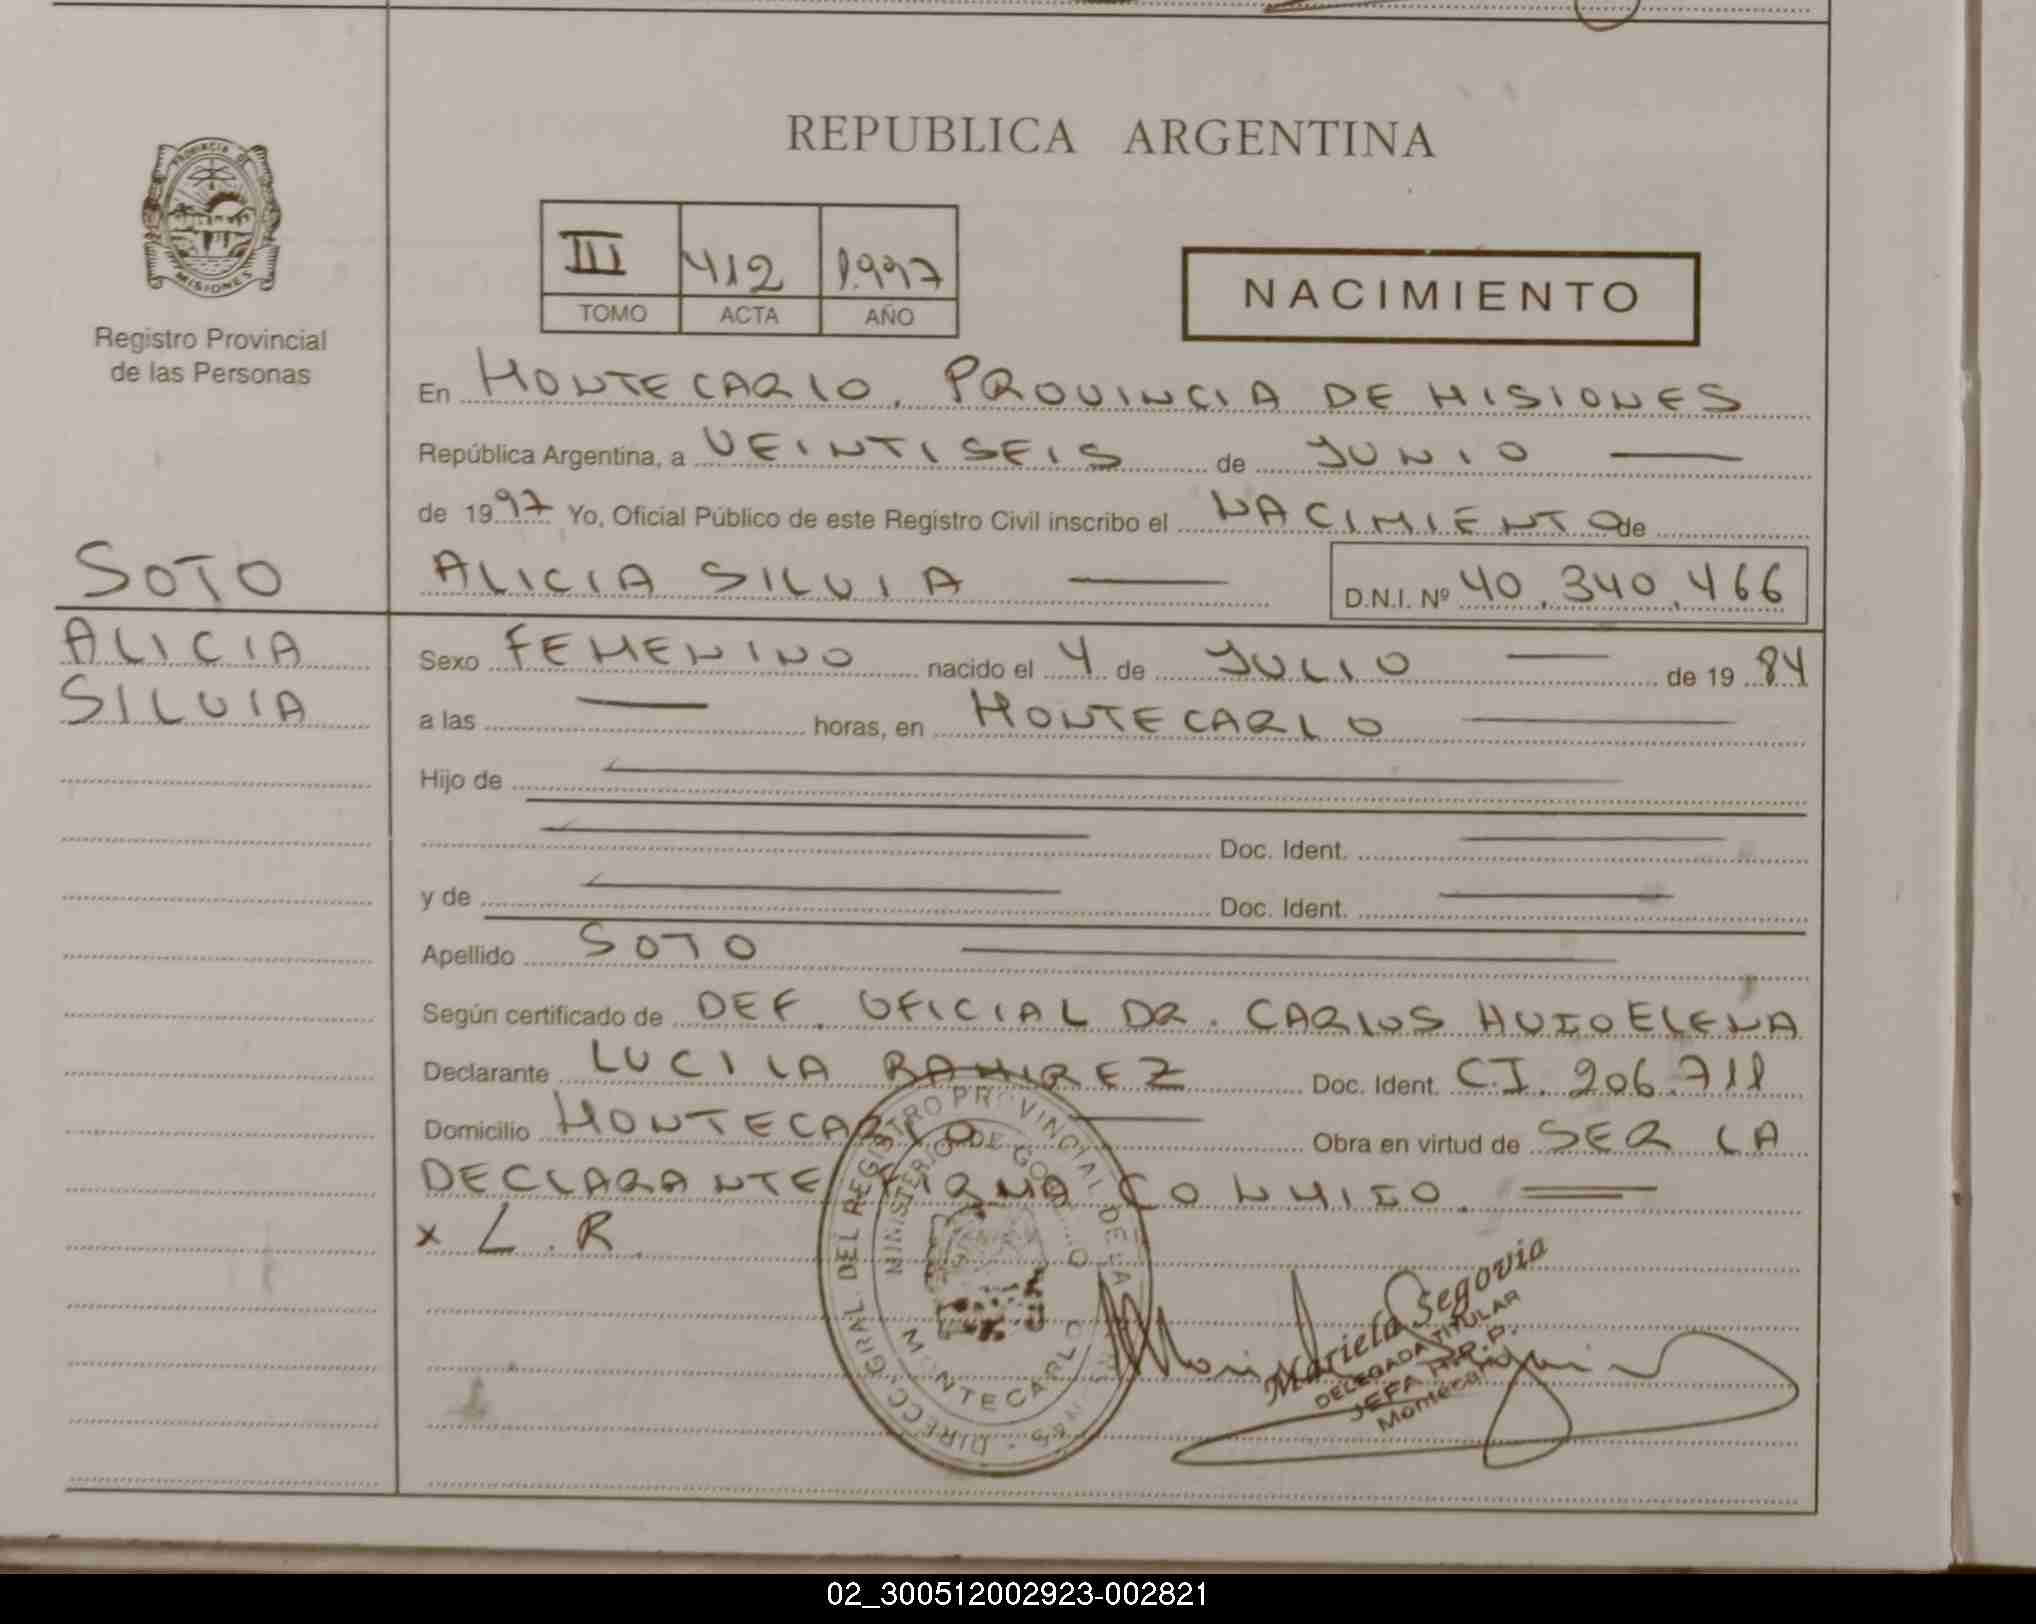 REPUBLICA ARGENTINA
PROVINCIA DE
MISIONES
Registro Provincial
de las Personas
III 412 1.997
TOMO ACTA AÑO
NACIMIENTO
En MONTECARLO. PROVINCIA DE MISIONES
República Argentina, a VEINTISEIS de JUNIO
de 1997 Yo, Oficial Público de este Registro Civil inscribo el NACIMIENTO de
SOTO
ALICIA SILVIA
D.N.I. Nº 40.340.466
ALICIA
SILVIA
Sexo FEMENINO nacido el 4 de JULIO de 1984
a las horas, en MONTECARLO
Hijo de
Doc. Ident.
y de Doc. Ident.
Apellido SOTO
Según certificado de DEF. OFICIAL DR. CARLOS HUGO ELENA
Declarante LUCILA RAMIREZ Doc. Ident. C.I. 206.711
Domicilio MONTECARLO Obra en virtud de SER LA
DECLARANTE FIRMA CONMIGO.
x L.R.
DIRECC. GRAL. DEL REGISTRO PROVINCIAL DE LAS
MINISTERIO DE
MONTECARLO
Mariela Segovia
DELEGADA TITULAR
JEFA R.P.P.
02_300512002923-002821